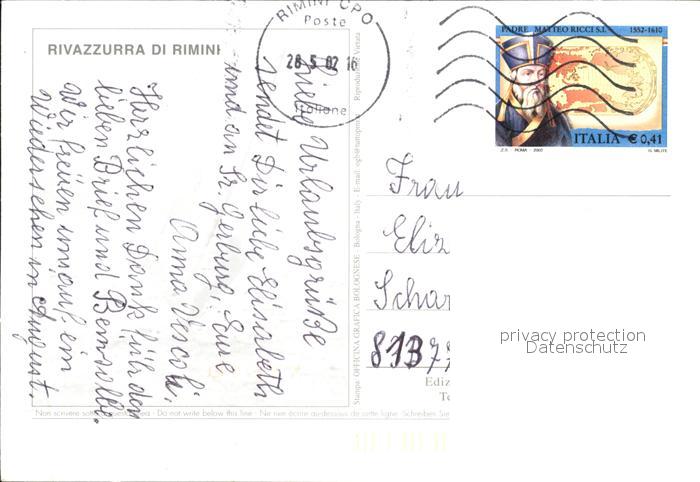 RIVAZZURRA DI RIMINI
Liebe Urlaubsgrüße
sendet Dir liebe Elisabeth
und an Sr. Gerburg, Eure
Anna Vescoli.
Herzlichen Dank für den
lieben Brief und
Wir freuen uns auf ein
Wiedersehen in August.
RIMINI CPO
Poste
28 5 02 16
Italiane
Stampa OFFICINA GRAFICA BOLOGNESE - Bologna - Italy - E-mail:
Riproduzione Vietata
PADRE MATTEO RICCI S.I. 1552-1610
ITALIA € 0,41
ROMA 2002
Frau
Eliz
Schar
81377
privacy protection
Datenschutz
Ediz
Te
Non scrivere sotto questa linea - Do not write below this line - Ne rien écrire au-dessous de cette ligne - Schreiben Sie